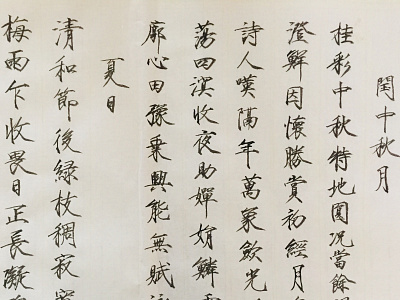 閏中秋月
桂彩中秋特地圓况當餘
澄鮮因懷勝賞初經月
詩人嘆隔年萬象斂光
蕩四溟收夜助嬋娟鱗
廓心田豫乘興能無賦
夏日
清和節後綠枝稠寂
梅雨乍收畏日正長凝